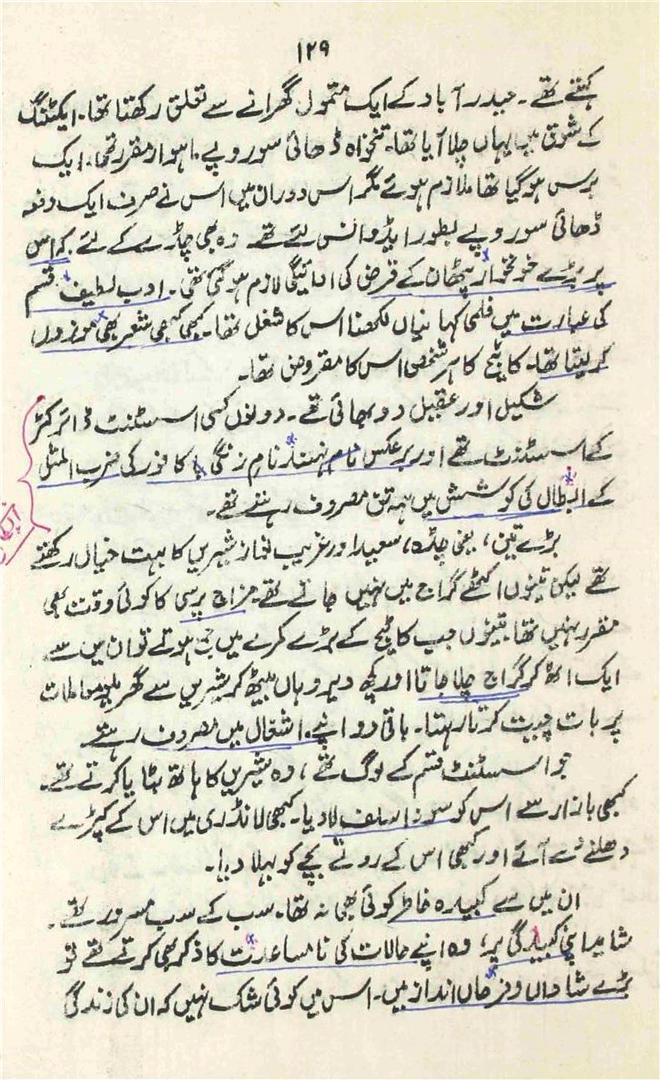 ۱۲۹
کہتے تھے۔ حیدر آباد کے ایک متمول گھرانے سے تعلق رکھتا تھا۔ ایکٹنگ
کے شوق میں یہاں چلا آیا تھا۔ تنخواہ ڈھائی سو روپے ماہوار مقرر تھا۔ ایک
برس ہو گیا تھا ملازم ہوئے مگر اس دوران میں اس نے صرف ایک دفعہ
ڈھائی سو روپے بطور ایڈوانس لئے تھے وہ بھی چڈے کے لئے کہ اس
پر بڑے خونخوار پٹھان کے قرض کی ادائیگی لازم ہو گئی تھی۔ ادب لطیف قسم
کی عبارت میں فلمی کہانیاں لکھنا اس کا شغل تھا۔ کبھی کبھی شعر بھی موزوں
کر لیتا تھا۔ کاٹیج کا ہر شخص اس کا مقروض تھا۔
شکیل اور عقیل دو بھائی تھے۔ دونوں کسی اسسٹنٹ ڈائرکٹر
کے اسسٹنٹ تھے اور برعکس نام نہند نام زنگی با کافور کی ضرب المثل
کے ابطال کی کوشش میں ہمہ تن مصروف رہتے تھے۔
بڑے تین، یعنی چڈہ، سعید اور غریب نواز شیریں کا بہت خیال رکھتے
تھے لیکن تینوں اکٹھے گراج میں نہیں جاتے تھے۔ مزاج پرسی کا کوئی وقت بھی
مقرر نہیں تھا۔ تینوں جب کاٹیج کے بڑے کمرے میں جمع ہوتے تو ان میں سے
ایک اٹھ کر گراج چلا جاتا اور کچھ دیر وہاں بیٹھ کر شیریں سے گھریلو معاملات
پر بات چیت کرتا رہتا۔ باقی دو اپنے اشغال میں مصروف رہتے
جو اسسٹنٹ قسم کے لوگ تھے، وہ شیریں کا ہاتھ بٹایا کرتے تھے۔
کبھی بازار سے اس کو سودا سلف لا دیا۔ کبھی لانڈری میں اس کے کپڑے
دھلنے دے آئے اور کبھی اس کے روتے بچے کو بہلا دیا۔
ان میں سے کبیدہ خاطر کوئی بھی نہ تھا۔ سب کے سب مسرور تھے۔
شاید اپنی کبیدگی پر، وہ اپنے حالات کی نامساعدت کا ذکر بھی کرتے تھے تو
بڑے شاداں و فرحاں انداز میں۔ اس میں کوئی شک نہیں کہ ان کی زندگی